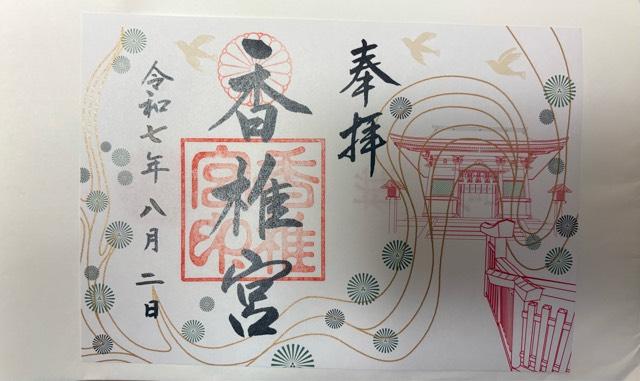 奉拝
香椎宮
香椎宮印
令和七年八月二日